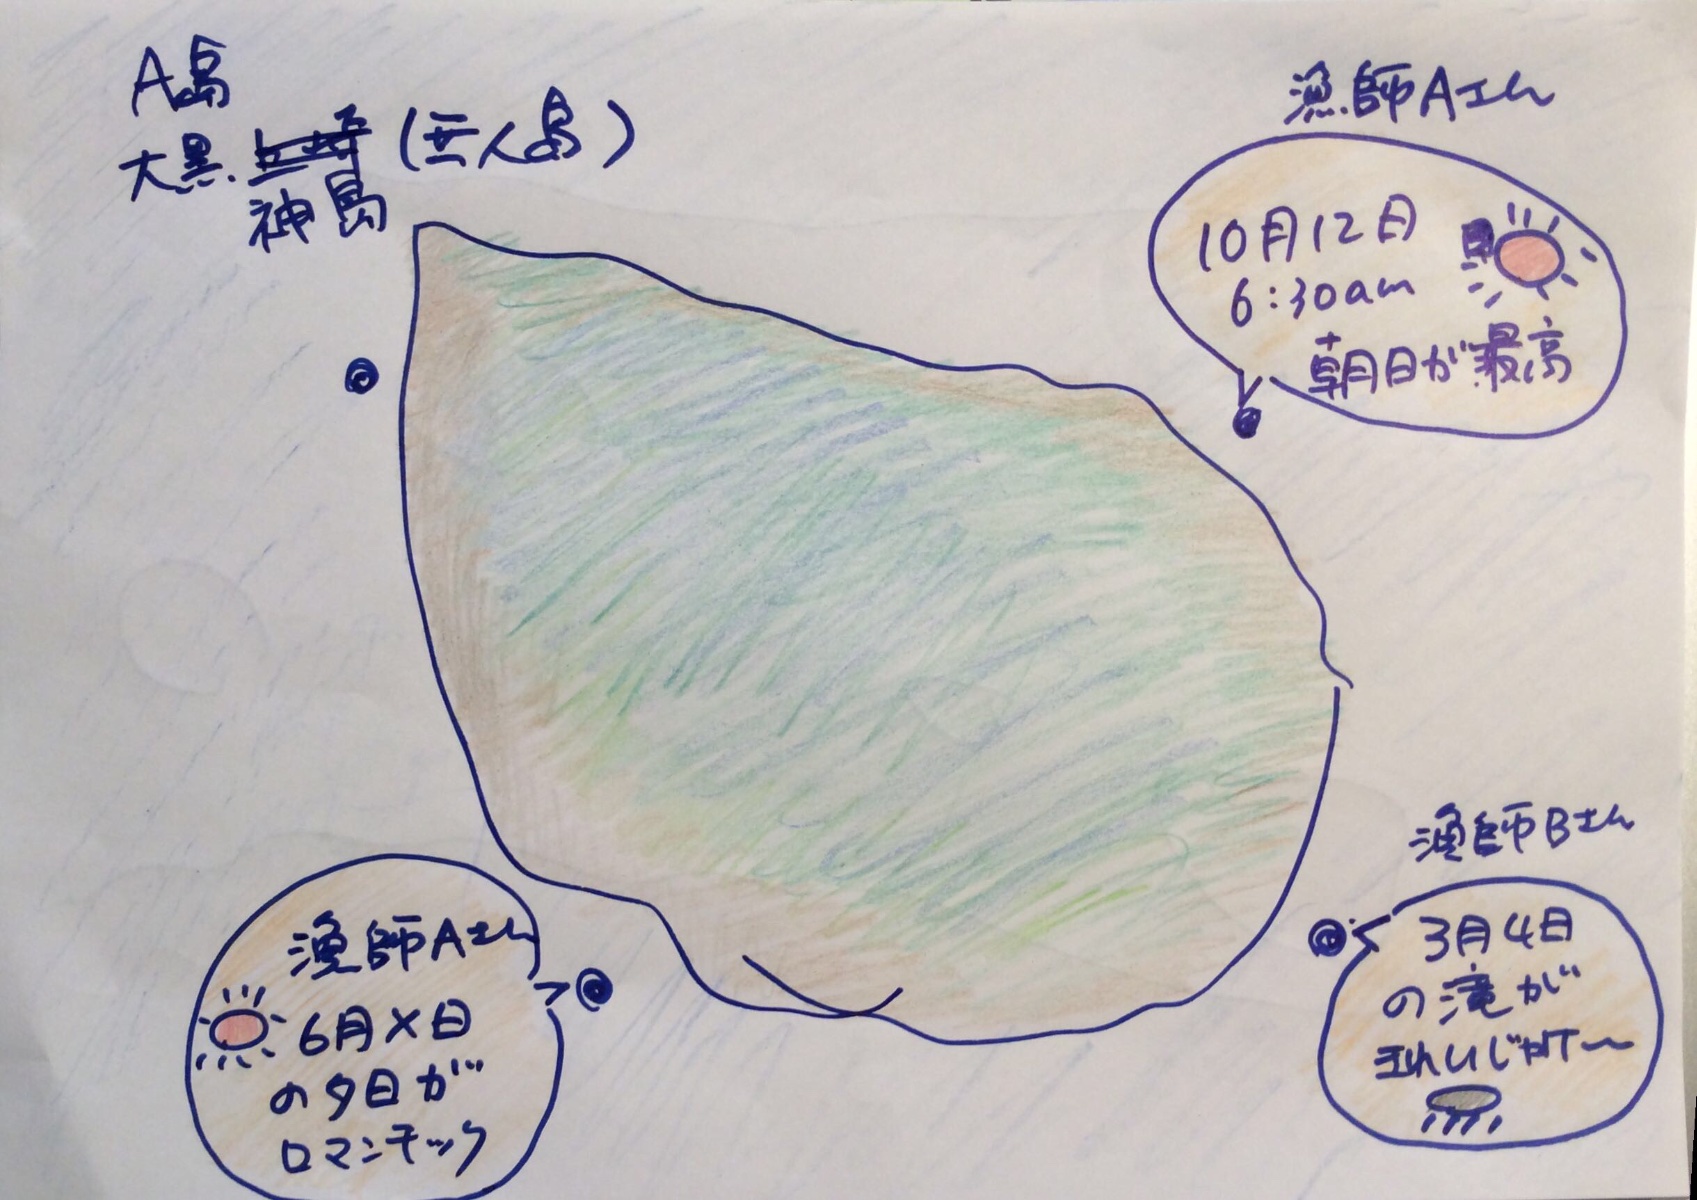 A島
大黒神島 (無人島)
漁師Aさん
10月12日
6:30am
朝日が最高
漁師Bさん
3月4日
の滝が
きれいじゃけ～
漁師Aさん
6月X日
の夕日が
ロマンチック